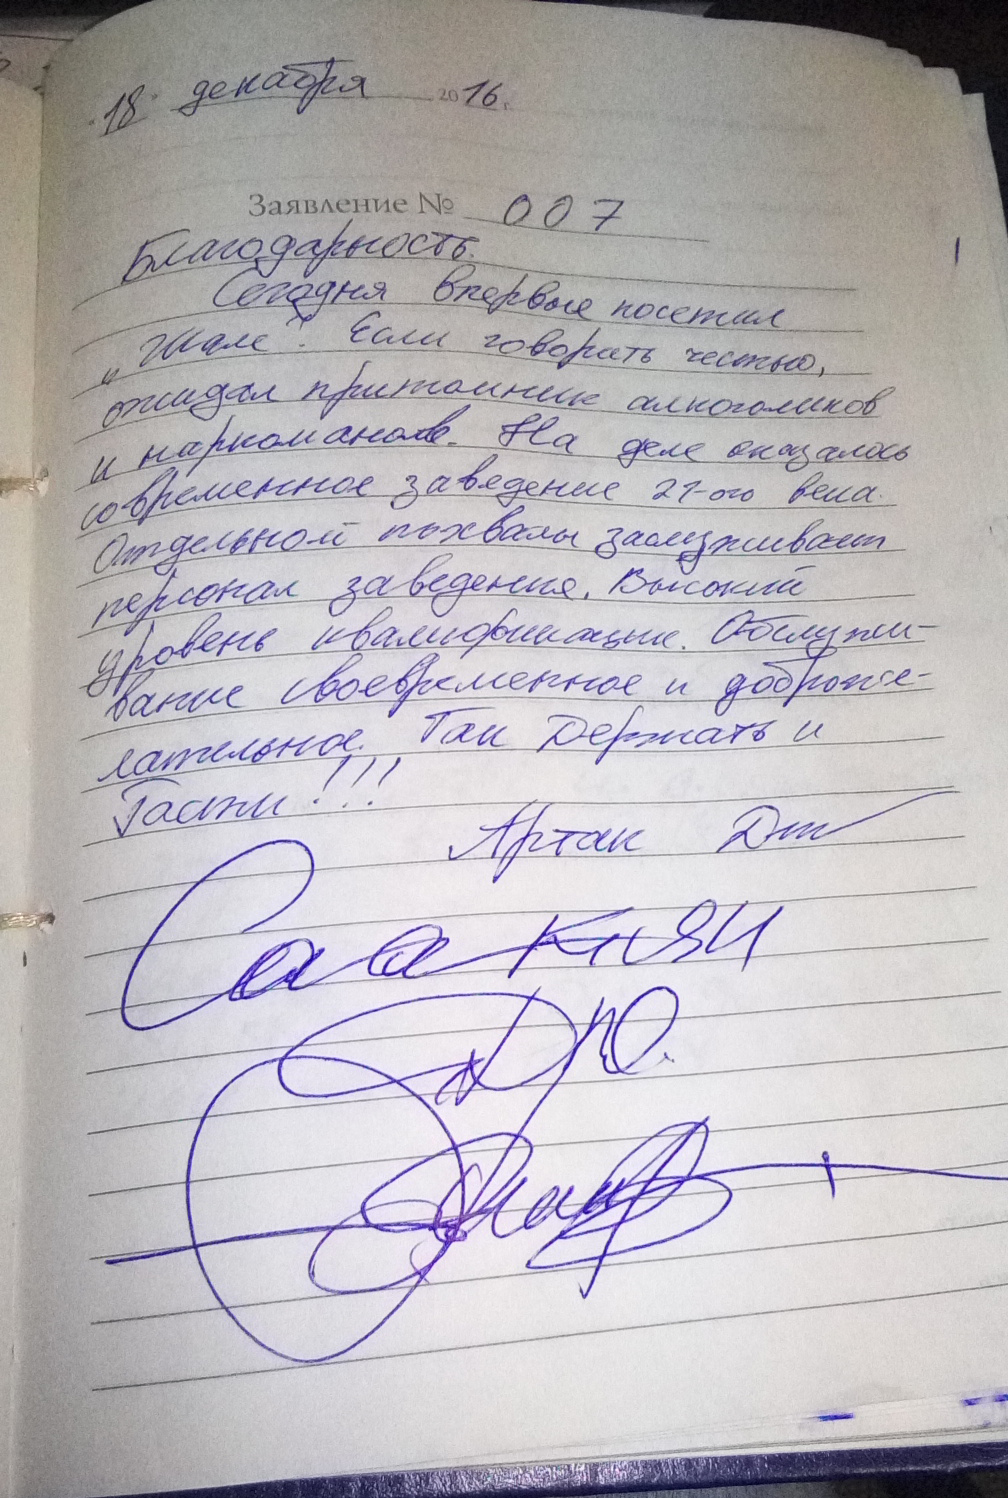 18 декабря 2016 г.
Заявление № 007
Благодарность.
Сегодня впервые посетил
„Шале". Если говорить честно,
ожидал притонник алкоголиков
и наркоманов. На деле оказалось
современное заведение 21-ого века.
Отдельной похвалы заслуживает
персонал заведения. Высокий
уровень квалификации. Обслужи-
вание своевременное и доброже-
лательное. Так Держать и
Гости!!!
Артак
Саакян